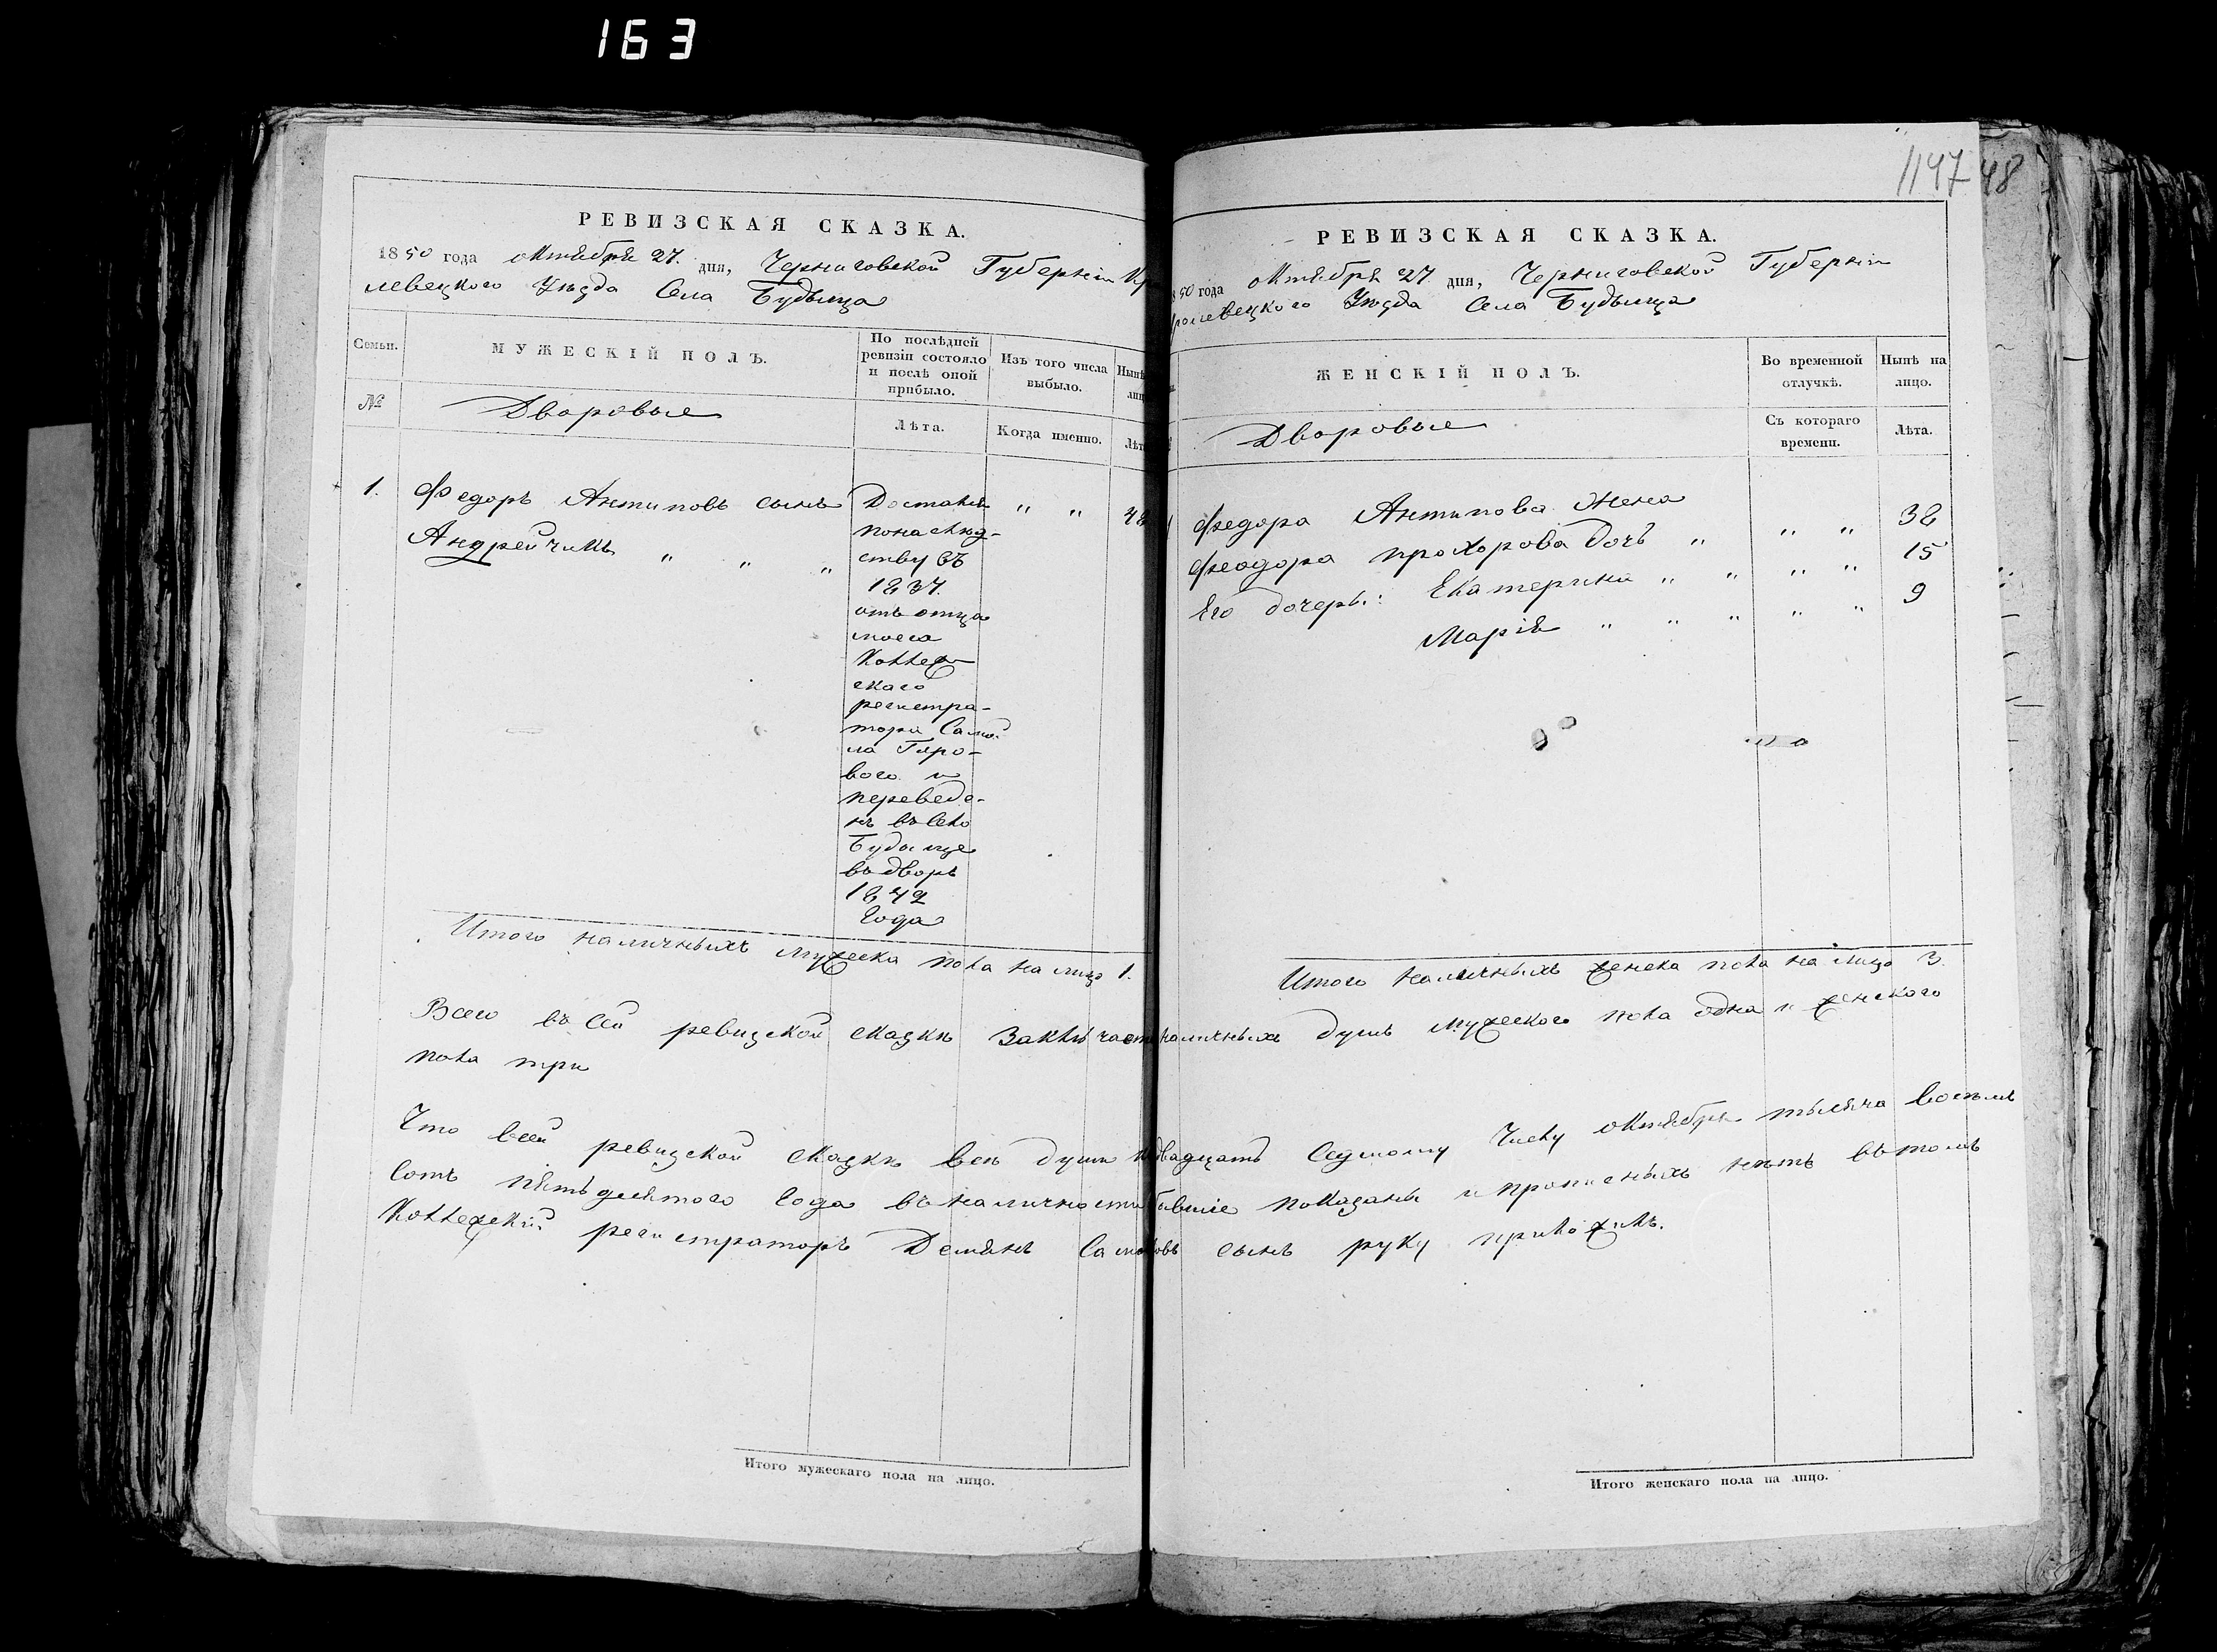 163
РЕВИЗСКАЯ СКАЗКА.
1850 года октября 27. дня, Черниговской Губерніи
левецкого Уѣзда Села Будыща
Семьи.
МУЖЕСКІЙ ПОЛЪ.
По послѣдней
ревизіи состояло
и послѣ оной
прибыло.
Изъ того числа
выбыло.
№
Дворовые
Лѣта.
Когда именно.
1. Федоръ Антиповъ сынъ
Андрейчикъ „ „ „
Достался
понаслюд-
ству въ
1837.
отъ отца
моего
Коллеж-
скаго
регистра-
тора Самой
ла Гиро-
вого и
переведе-
нъ въ село
Будыще
въ дворъ
1842
года
„ „
48
Итого наличныхъ мужеска пола на лицо 1.
1147 48
РЕВИЗСКАЯ СКАЗКА.
50 года октября 27 дня, Черниговской Губерніи
ролевецкого Уѣзда Села Будыща
ЖЕНСКІЙ ПОЛЪ.
Во временной
отлучкѣ.
Нынѣ на
лицо.
Дворовые
Съ котораго
времени.
Лѣта.
Федора Антипова жена
Феодора прохорова дочъ „ „ „ 38
Его дочеры: Екатерина „ „ „ „ 15
Марія „ „ „ „ „ 9
Итого наличныхъ женска пола на лицо 3.
Всего въ сей ревизской сказкѣ заключается наличныхъ душъ мужеского пола одна и женского
пола три
Что всей ревизской сказкѣ всѣ души двадцать седмому числу октября тысяча восемь
сотъ пятьдесятого года въ наличности бывшіе показаны и прописныхъ нѣтъ въ томъ
Коллежскій регистраторъ Демянъ сынъ руку приложилъ.
Итого мужескаго пола на лицо.
Итого женскаго пола на лицо.